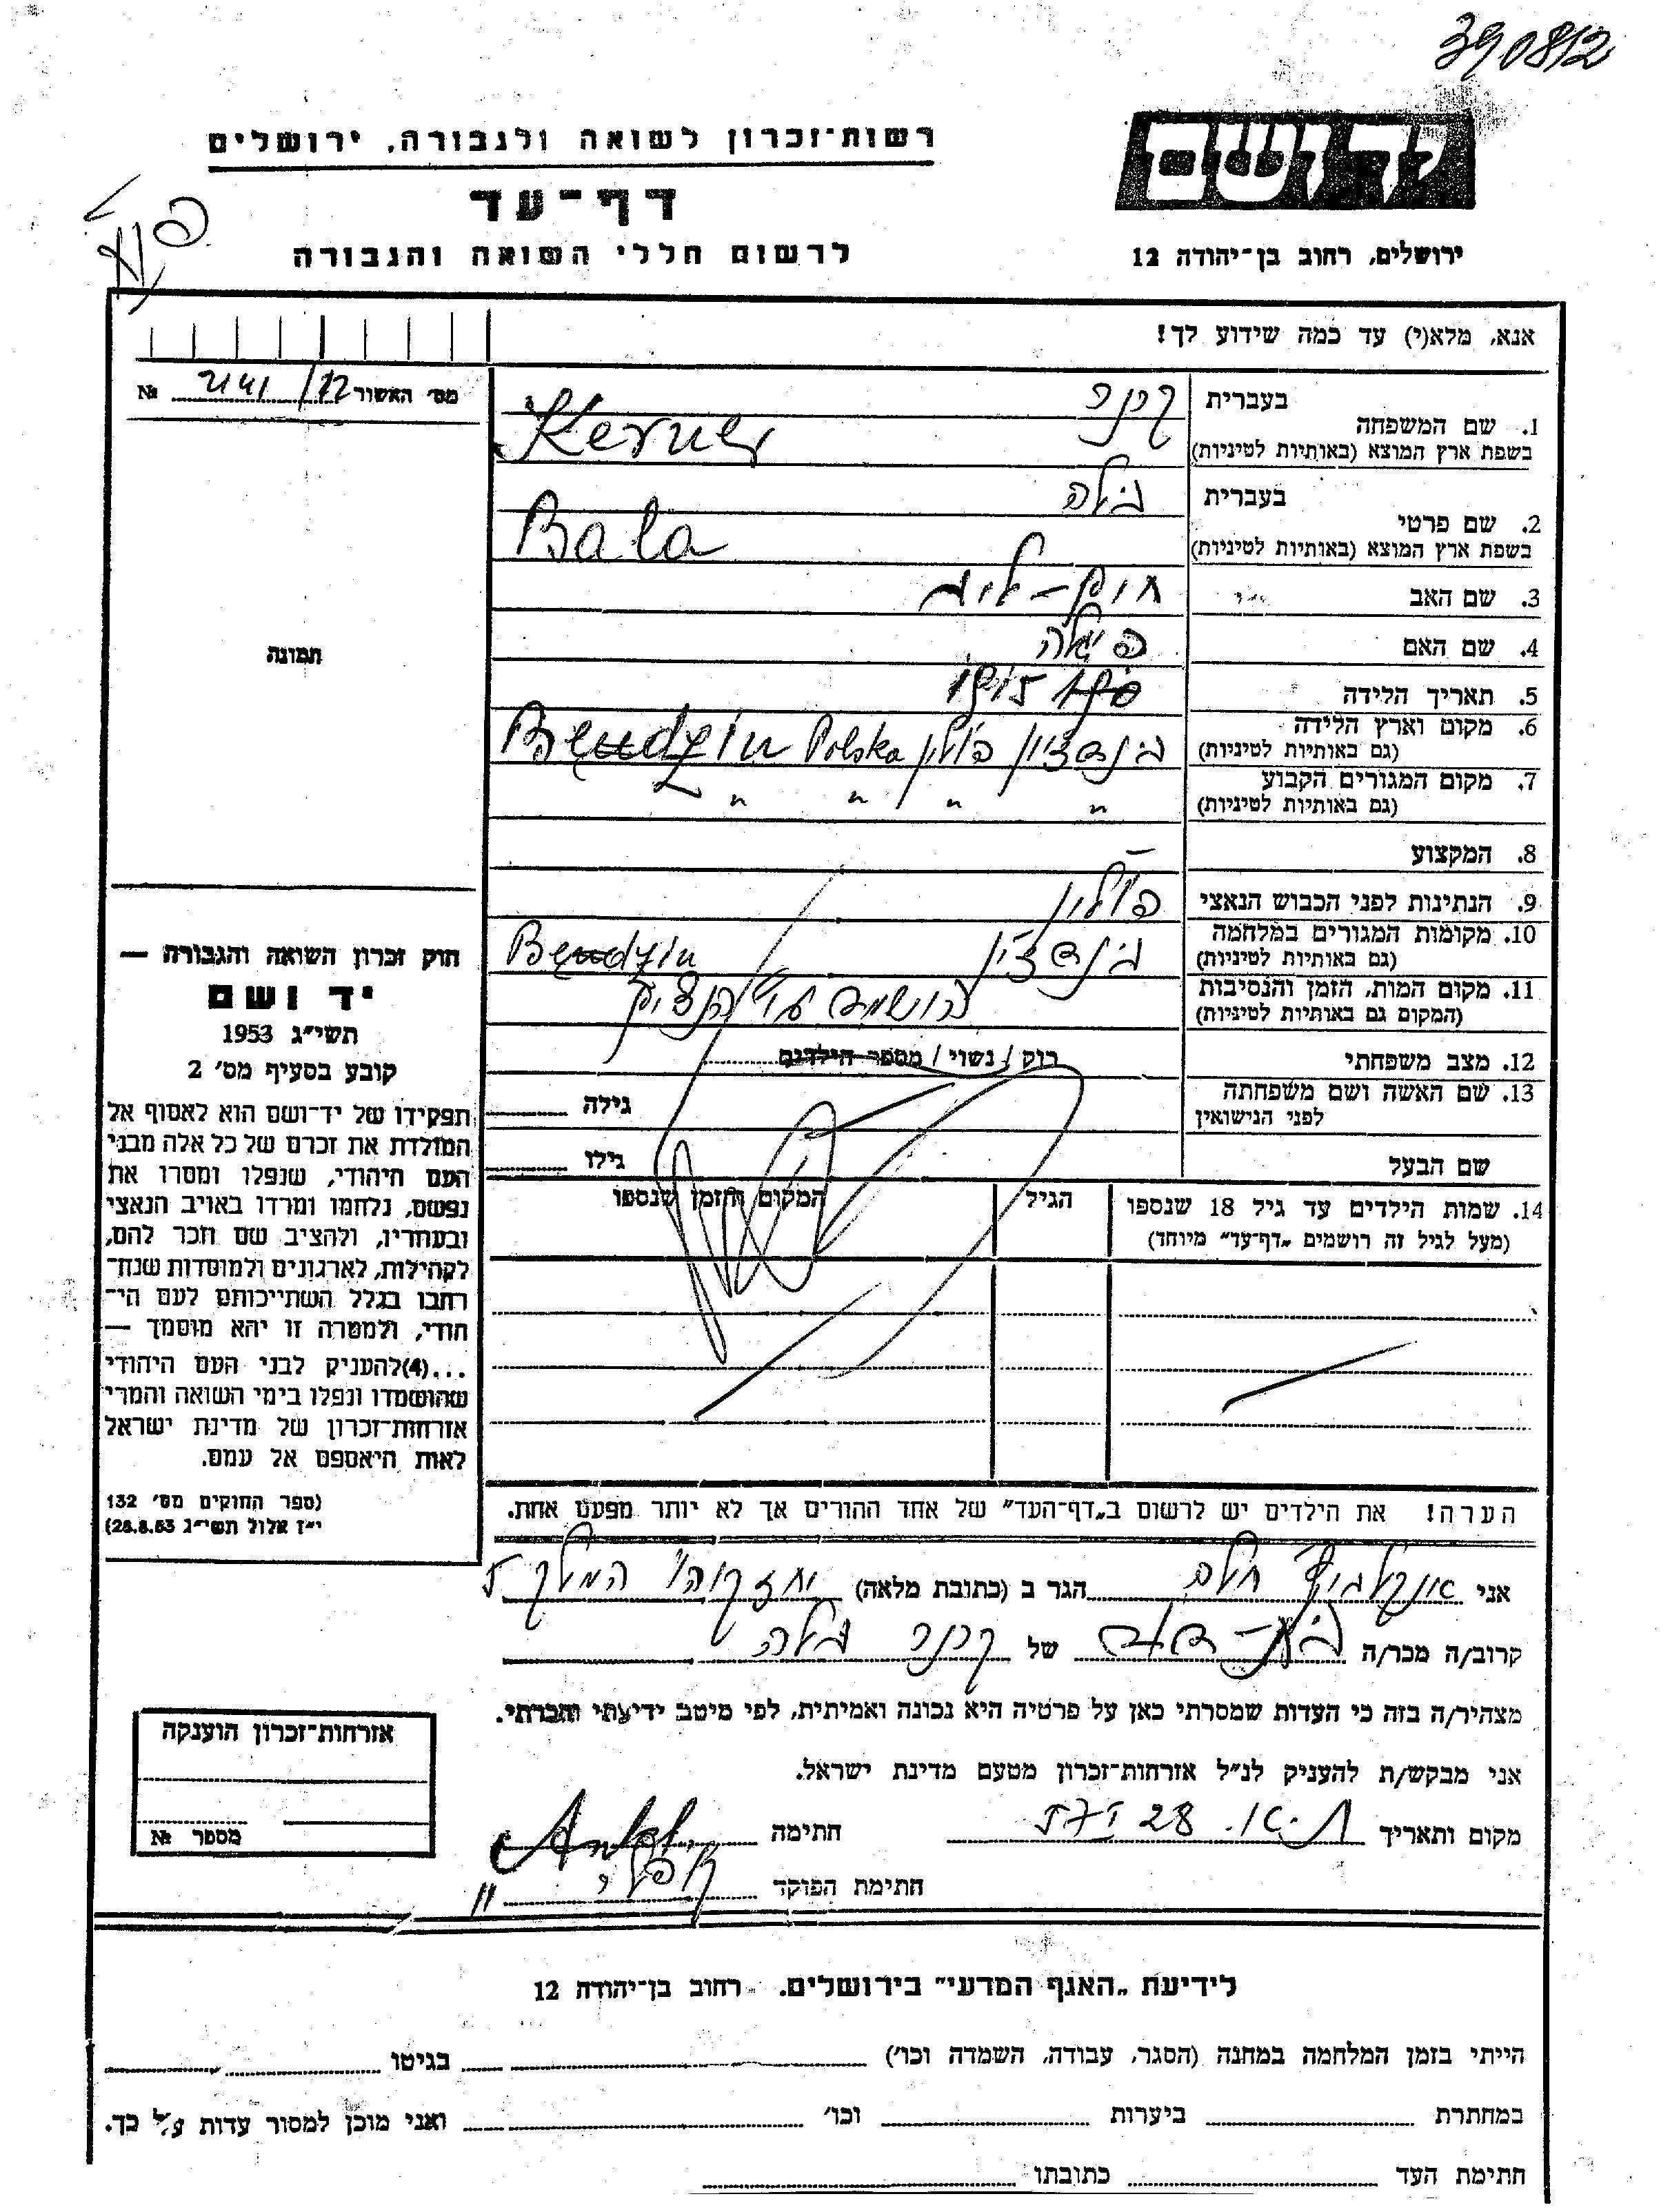 390812
רשות־זכרון לשואה ולגבורה, ירושלים
יד ושם
דף־עד
לרשום חללי השואה והגבורה
ירושלים, רחוב בן־יהודה 12
אנא, מלא(י) עד כמה שידוע לך!
מס׳ האשור 12/ 2141 №
1. שם המשפחה
בעברית קרנר
בשפת ארץ המוצא (באותיות לטיניות) Kerner
2. שם פרטי
בעברית בילה
בשפת ארץ המוצא (באותיות לטיניות) Bala
3. שם האב חיים-
4. שם האם
5. תאריך הלידה 1915
6. מקום וארץ הלידה
(גם באותיות לטיניות) בנדצין פולין Polska Bendzin
7. מקום המגורים הקבוע
(גם באותיות לטיניות) " " " "
8. המקצוע –
9. הנתינות לפני הכבוש הנאצי פולין
10. מקומות המגורים במלחמה
(גם באותיות לטיניות) בנדצין Bendzin
11. מקום המות, הזמן והנסיבות
(המקום גם באותיות לטיניות) הושמד ע״י הנצים
12. מצב משפחתי רוק / נשוי / מספר הילדים
13. שם האשה ושם משפחתה
לפני הנישואין גילה
שם הבעל גילו
14. שמות הילדים עד גיל 18 שנספו הגיל המקום והזמן שנספו
(מעל לגיל זה רושמים „דף־עד״ מיוחד)
הערה! את הילדים יש לרשום ב„דף־העד״ של אחד ההורים אך לא יותר מפעם אחת.
תמונה
חוק זכרון השואה והגבורה —
יד ושם
תשי״ג 1953
קובע בסעיף מס׳ 2
תפקידו של יד־ושם הוא לאסוף אל
המולדת את זכרם של כל אלה מבני
העם היהודי, שנפלו ומסרו את
נפשם, נלחמו ומרדו באויב הנאצי
ובעוזריו, ולהציב שם וזכר להם,
לקהילות, לארגונים ולמוסדות שנח־
רהבו בגלל השתייכותם לעם הי־
הודי, ולמטרה זו יהא מוסמך —
...(4)להעניק לבני העם היהודי
שהושמדו ונפלו בימי השואה והמרי
אזרחות־זכרון של מדינת ישראל
לאות היאספם אל עמם.
(ספר החוקים מס׳ 132
י״ז אלול תשי״ג 28.8.53)
אני חולם הגר ב (כתובת מלאה) יחזקיהו המלך 5
קרוב/ה מכר/ה בן-דוד של קרנר בילה
מצהיר/ה בזה כי העדות שמסרתי כאן על פרטיה היא נכונה ואמיתית, לפי מיטב ידיעתי והכרתי.
אני מבקש/ת להעניק לנ״ל אזרחות־זכרון מטעם מדינת ישראל.
מקום ותאריך ת-א. 28 חתימה
חתימת הפוקד
אזרחות־זכרון הוענקה
מספר №
לידיעת „האגף המדעי״ בירושלים. רחוב בן־יהודה 12
הייתי בזמן המלחמה במחנה (הסגר, עבודה, השמדה וכו׳) בגיטו
במחתרת ביערות וכו׳ ואני מוכן למסור עדות על כך.
חתימת העד כתובתו